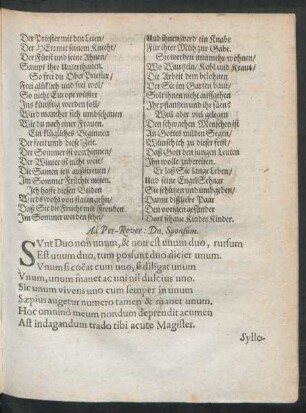 Der Priester mit den Leien/
Der HErr mit seinem Knecht/
Der Fürst und seine Ahnen/
Sampt ihre Unterthanen.
So frei du Ober Priester/
Frei glücklich und frei wol/
So nicht Europe wüster
Ins künfftig werden soll/
Wird mancher sich umbschauen
Wie du nach einer Frauen.
Ein klügliches Beginnen
Der freit umb diese Zeit.
Der Sommer ist von hinnen/
Der Winter ist nicht weit/
Die Samen ietz außstreuen/
Im Sommer Früchte meien.
Ich hoffe diesen Bilden
Wird es wohl von staten gehn/
Daß Sie die Frucht mit Freuden
Im Sommer werden sehn/
Und ihnen werd' ein Knabe
Für ihrer Müh zur Gabe.
Sie werben nunmehr wohnen/
Wo Wurtzeln/ Kohl und Kraut/
Die Arbeit dem belohnen
Der Sie im Garten baut/
Solt ihnen nicht auffgehen
Ihr pflantzen und ihr säen?
Weil aber viel gelegen
Den schwachen Menschen ist
An Gottes milden Segen/
Wünsch ich zu dieser frist/
Daß Gott den jungen Leuten
Ihn wolle zubereiten.
Er laß Sie lange Leben/
Und seine Engel-Schaar
Sie schützen und umbgeben/
Damit dißliebe Paar
Den vorigen gesünder
Dort schaue Kindes Kinder.
Ad Per-Rever: Dn. Sponsum.
SUnt Duo non unum, & non est unum duo, rursum
Est unum duo, tum possunt duo dicier unum.
Unum si coëat cum uno, si diligat unum
Unum, unum manet ac uni nil dulcius uno.
Sic unum vivens uno cum semper in unum
Sæpius augetur numero tamen & manet unum.
Hoc omnino meum nondum deprendit acumen
Ast indagandum trado tibi acute Magister.
Syllo-